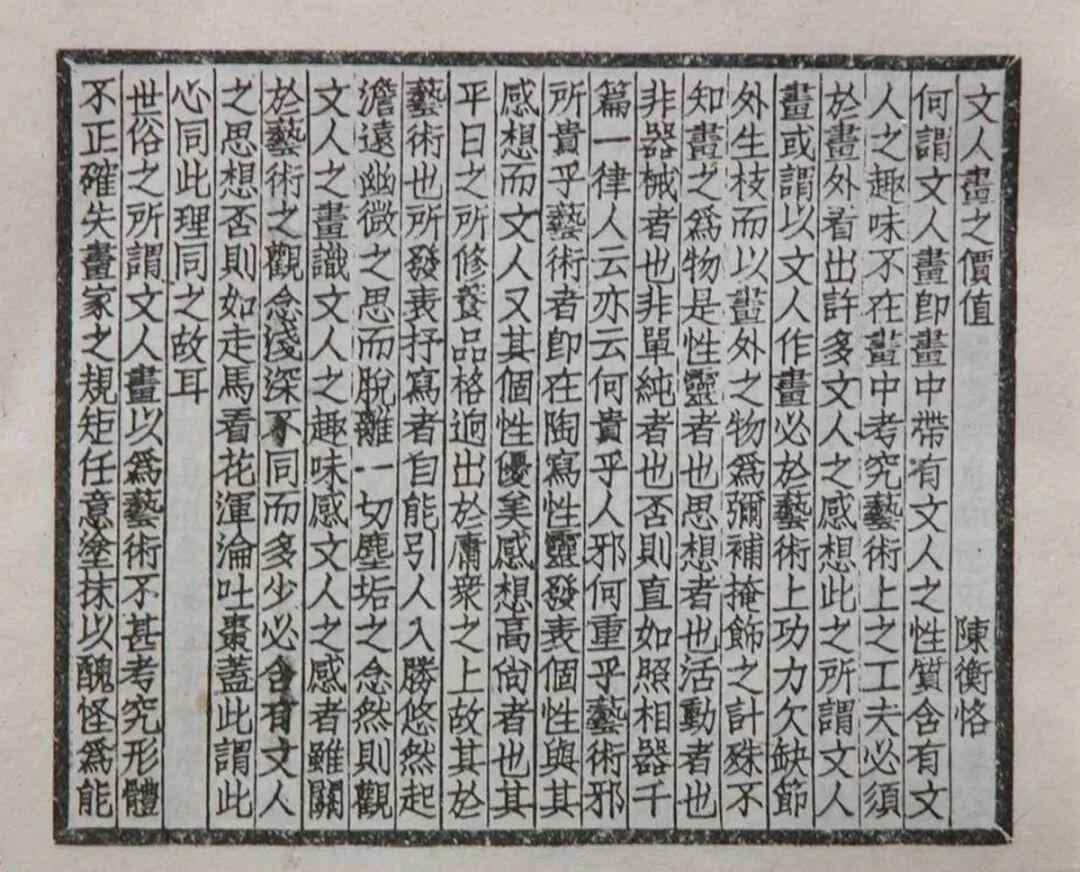 文人畫之價值 陳衡恪
何謂文人畫卽畫中帶有文人之性質含有文
人之趣味不在畫中考究藝術上之工夫必須
於畫外看出許多文人之感想此之所謂文人
畫或謂以文人作畫必於藝術上功力欠缺節
外生枝而以畫外之物爲彌補掩飾之計殊不
知畫之爲物是性靈者也思想者也活動者也
非器械者也非單純者也否則直如照相器千
篇一律人云亦云何貴乎人邪何重乎藝術邪
所貴乎藝術者卽在陶寫性靈發表個性與其
感想而文人又其個性優美感想高尙者也其
平日之所修養品格迥出於庸衆之上故其於
藝術也所發表抒寫者自能引人入勝悠然起
澹遠幽微之思而脫離一切塵垢之念然則觀
文人之畫識文人之趣味感文人之感者雖關
於藝術之觀念淺深不同而多少必含有文人
之思想否則如走馬看花渾淪吐棗蓋此謂此
心同此理同之故耳
世俗之所謂文人畫以爲藝術不甚考究形體
不正確失畫家之規矩任意塗抹以醜怪爲能